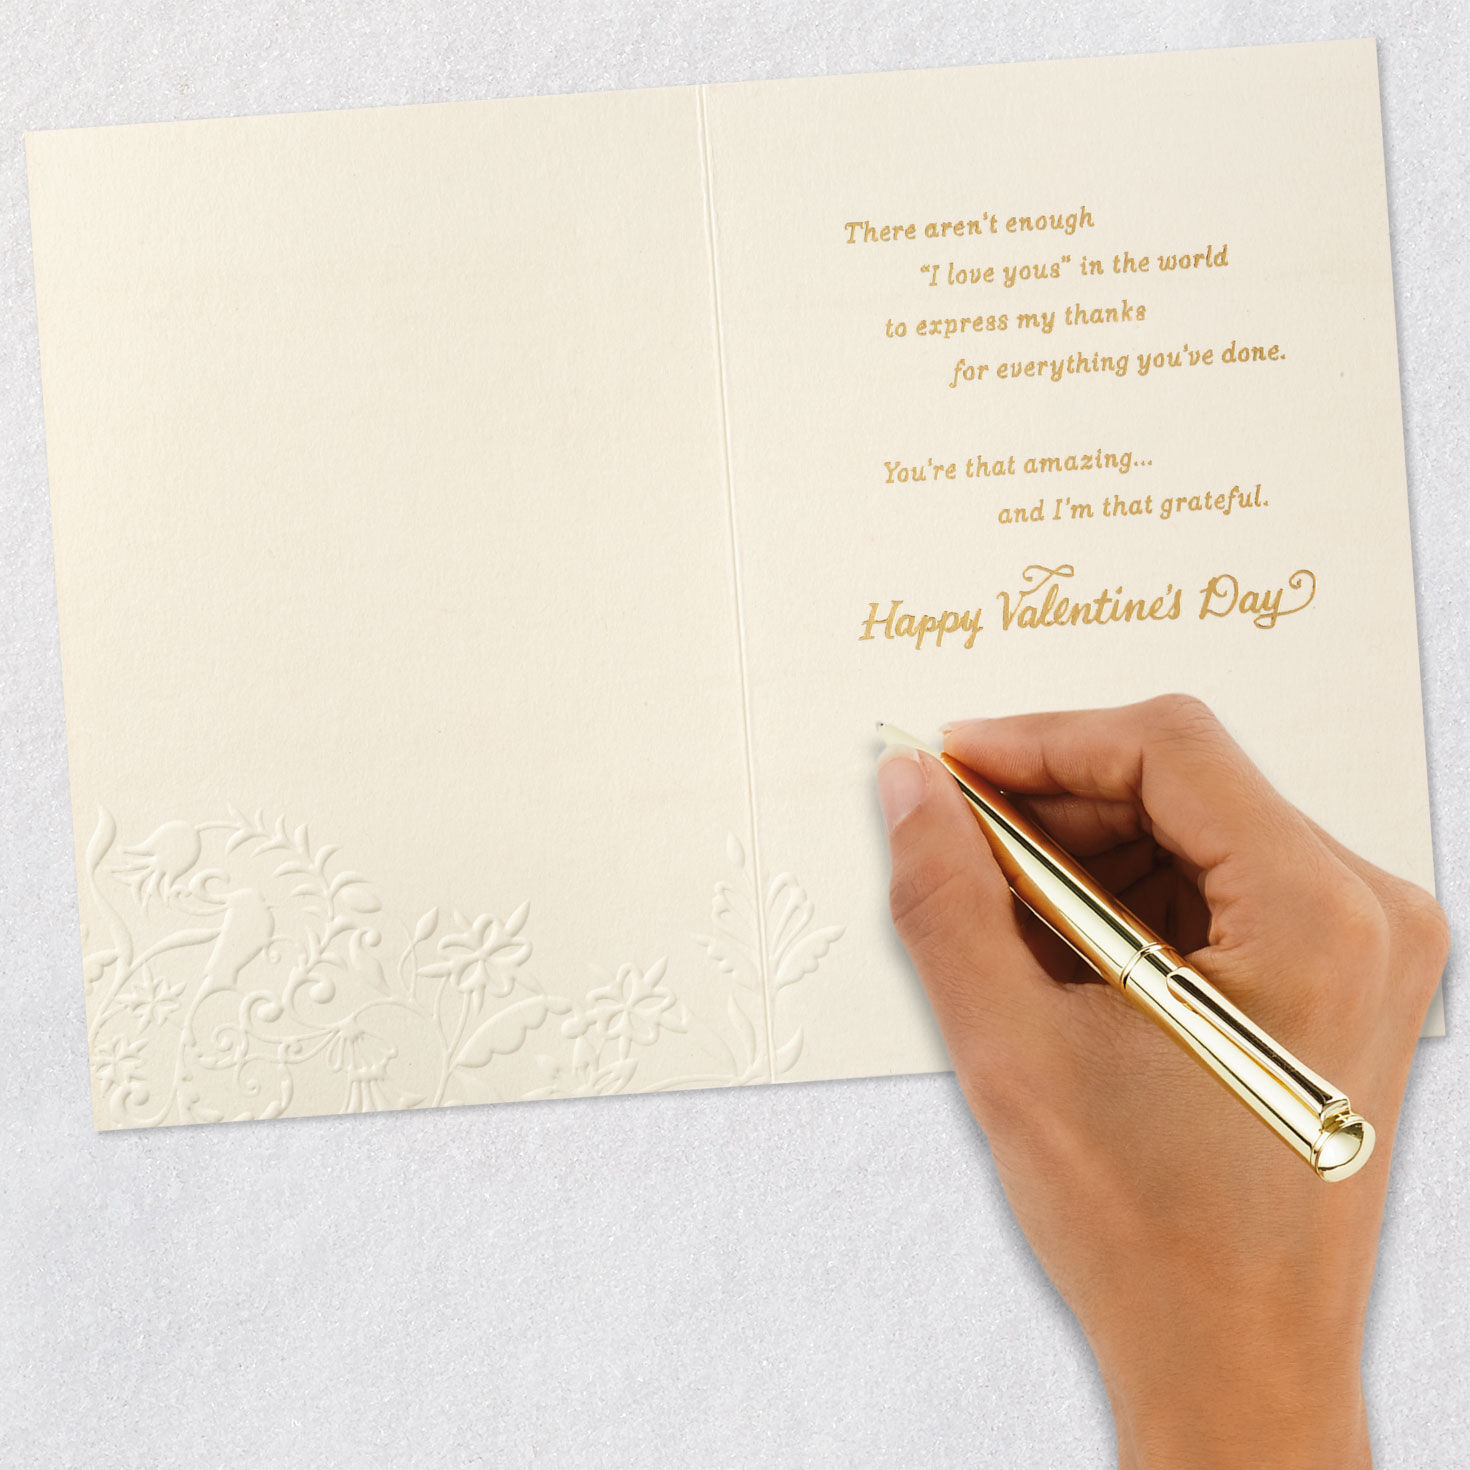 There aren't enough
“I love yous” in the world
to express my thanks
for everything you've done.
You're that amazing...
and I'm that grateful.
Happy Valentine's Day